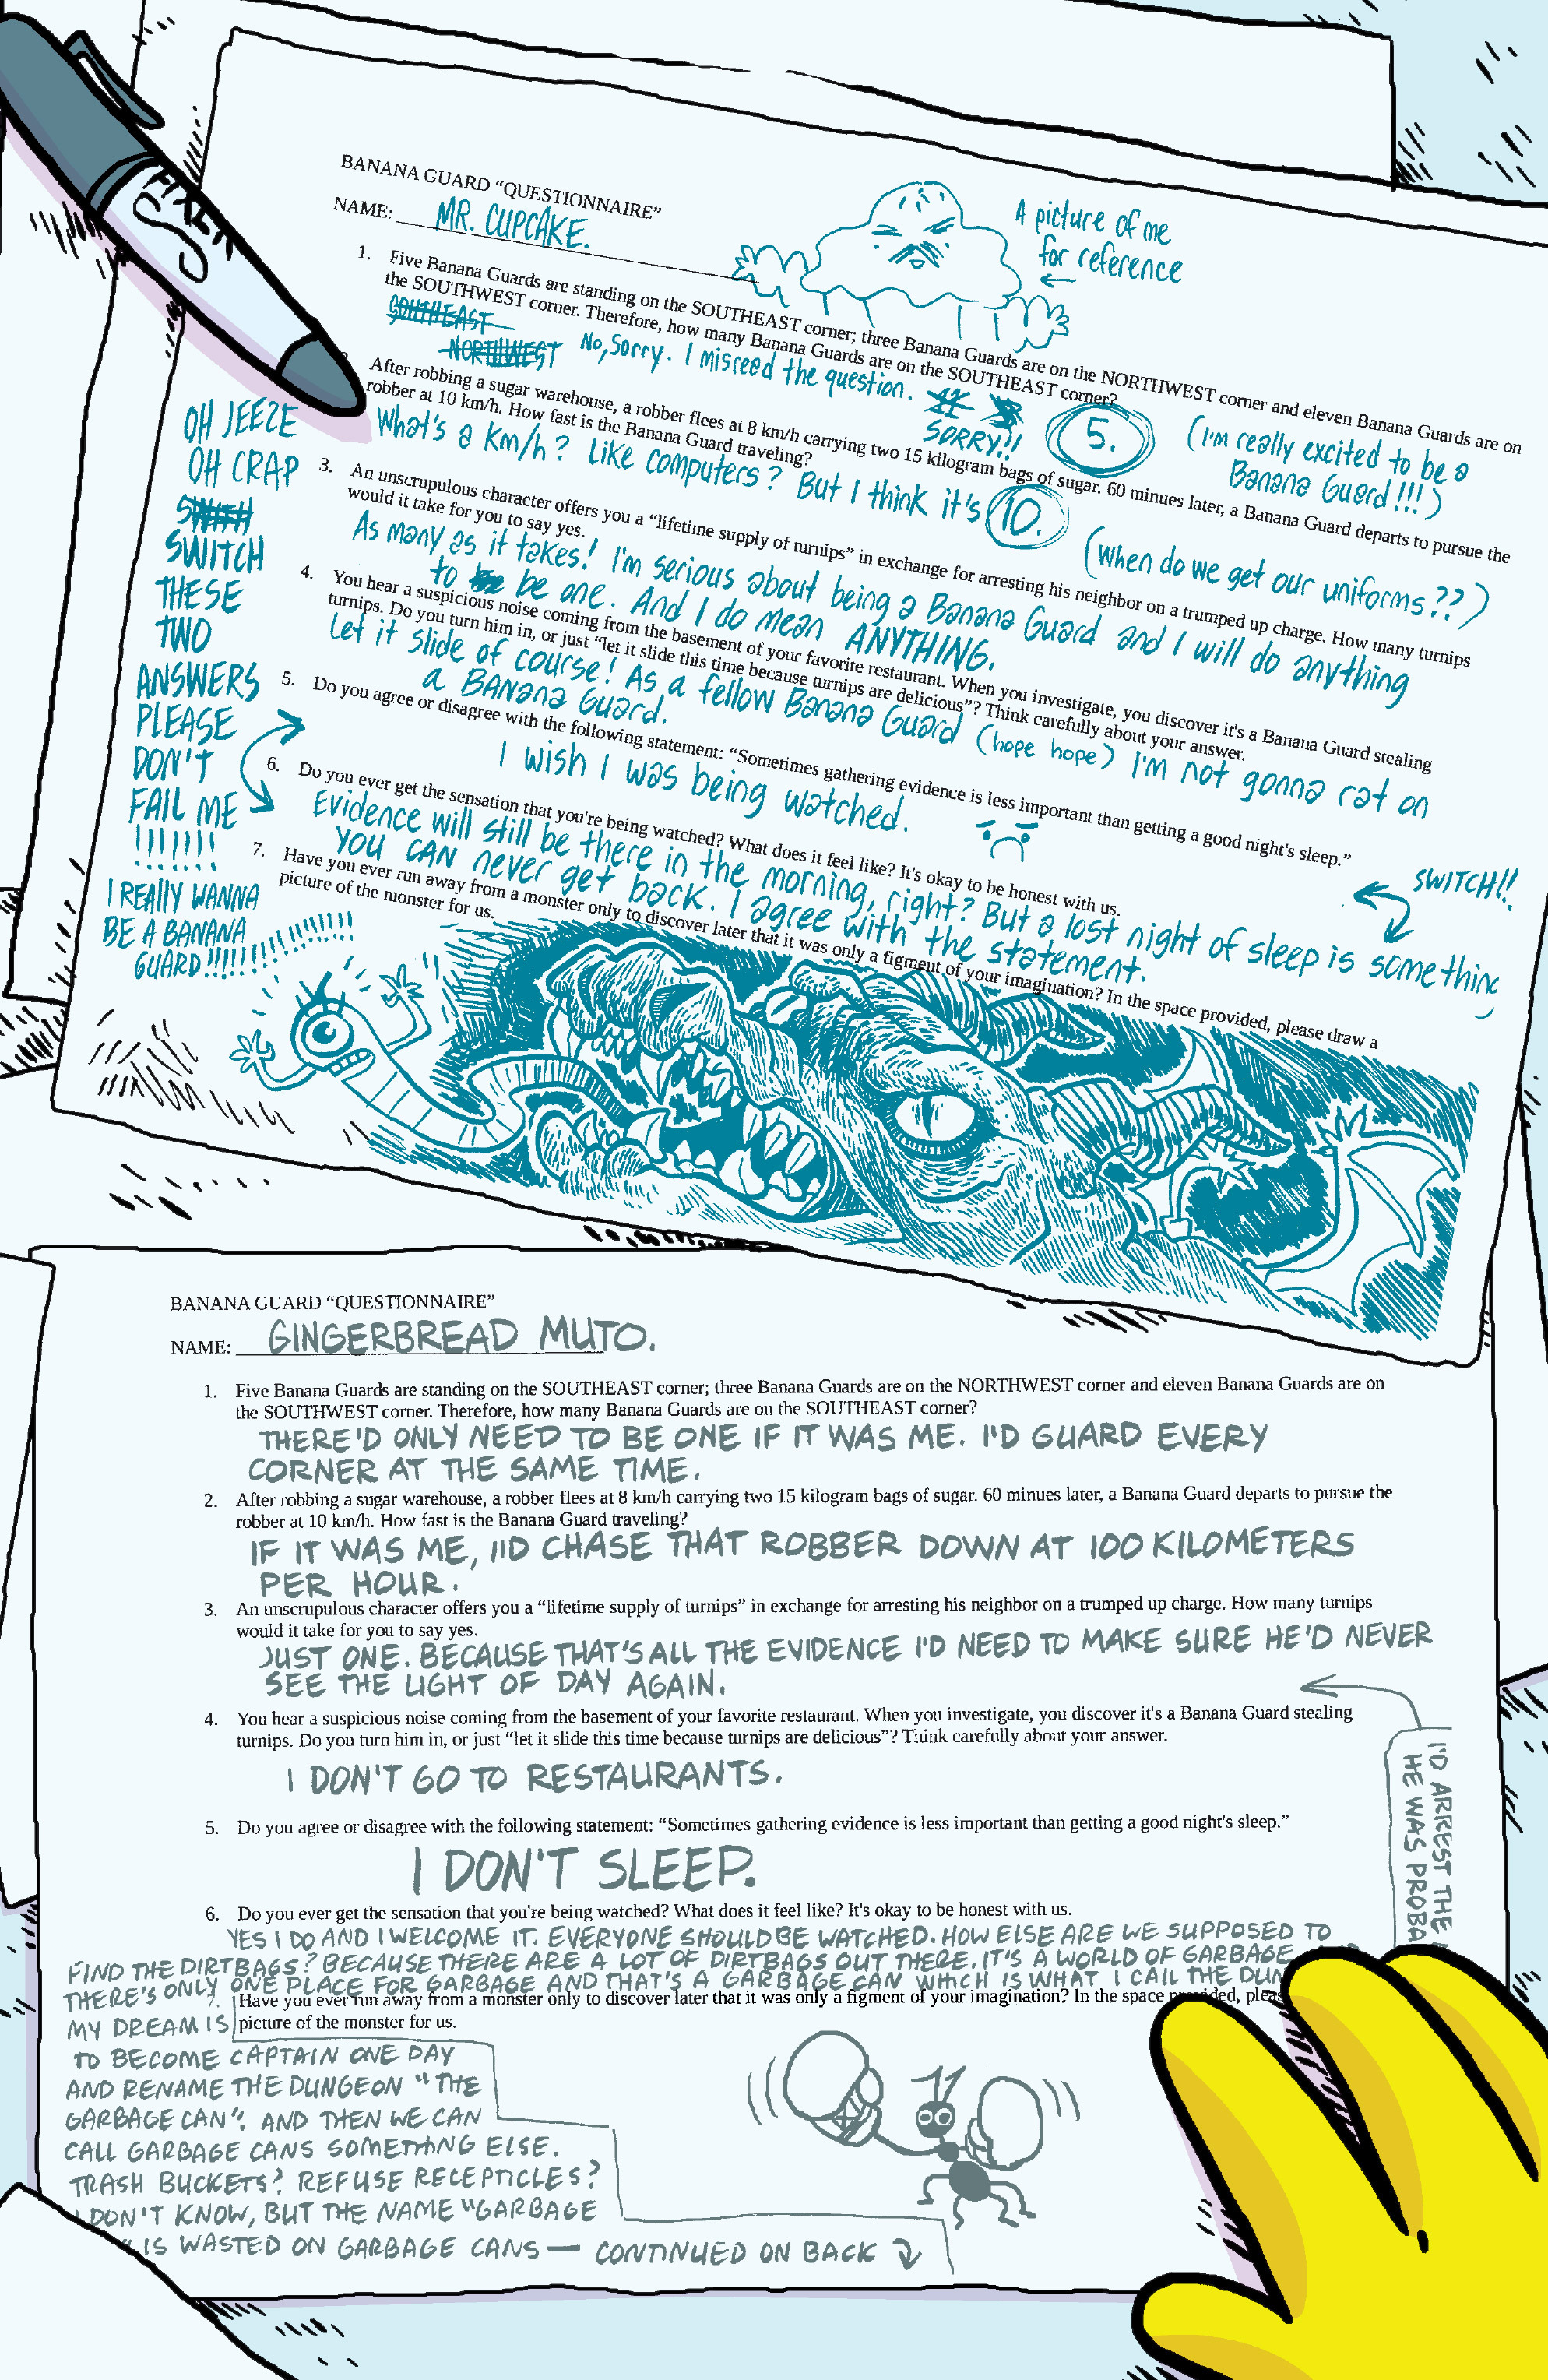 BANANA GUARD “QUESTIONNAIRE”
NAME: MR. CUPCAKE.
A picture of me
for reference
1. Five Banana Guards are standing on the SOUTHEAST corner; three Banana Guards are on the NORTHWEST corner and eleven Banana Guards are on
the SOUTHWEST corner. Therefore, how many Banana Guards are on the SOUTHEAST corner?
SOUTHEAST
NORTHWEST No, Sorry. I misreed the question. 11
SORRY!!
5.
(I'm really excited to be a
Banana Guard!!!)
After robbing a sugar warehouse, a robber flees at 8 km/h carrying two 15 kilogram bags of sugar. 60 minues later, a Banana Guard departs to pursue the
robber at 10 km/h. How fast is the Banana Guard traveling?
What's a Km/h? Like computers? But I think it's 10.
(when do we get our uniforms??)
3. An unscrupulous character offers you a “lifetime supply of turnips” in exchange for arresting his neighbor on a trumped up charge. How many turnips
would it take for you to say yes.
As many as it takes! I'm serious about being a Banana Guard and I will do anything
to be one. And I do mean ANYTHING.
4. You hear a suspicious noise coming from the basement of your favorite restaurant. When you investigate, you discover it's a Banana Guard stealing
turnips. Do you turn him in, or just “let it slide this time because turnips are delicious”? Think carefully about your answer.
Let it slide of course! As a fellow Banana Guard (hope hope) I'm not gonna rat on
a BANana Guard.
5. Do you agree or disagree with the following statement: “Sometimes gathering evidence is less important than getting a good night's sleep.”
I wish I was being watched.
SWITCH!!
6. Do you ever get the sensation that you're being watched? What does it feel like? It's okay to be honest with us.
Evidence will still be there in the morning, right? But a lost night of sleep is something
YOU CAN never get back. I agree with the statement.
7. Have you ever run away from a monster only to discover later that it was only a figment of your imagination? In the space provided, please draw a
picture of the monster for us.
OH JEEZE
OH CRAP
SWITCH
THESE
TWO
ANSWERS
PLEASE
DON'T
FAIL ME
!!!!!!!
I REALLY WANNA
BE A BANANA
GUARD!!!!!!!!!!!!!!!!
BANANA GUARD “QUESTIONNAIRE”
NAME: GINGERBREAD MUTO.
1. Five Banana Guards are standing on the SOUTHEAST corner; three Banana Guards are on the NORTHWEST corner and eleven Banana Guards are on
the SOUTHWEST corner. Therefore, how many Banana Guards are on the SOUTHEAST corner?
THERE'D ONLY NEED TO BE ONE IF IT WAS ME. I'D GUARD EVERY
CORNER AT THE SAME TIME.
2. After robbing a sugar warehouse, a robber flees at 8 km/h carrying two 15 kilogram bags of sugar. 60 minues later, a Banana Guard departs to pursue the
robber at 10 km/h. How fast is the Banana Guard traveling?
IF IT WAS ME, I'D CHASE THAT ROBBER DOWN AT 100 KILOMETERS
PER HOUR.
3. An unscrupulous character offers you a “lifetime supply of turnips” in exchange for arresting his neighbor on a trumped up charge. How many turnips
would it take for you to say yes.
JUST ONE. BECAUSE THAT'S ALL THE EVIDENCE I'D NEED TO MAKE SURE HE'D NEVER
SEE THE LIGHT OF DAY AGAIN.
I'D ARREST THE
HE WAS PROBA
4. You hear a suspicious noise coming from the basement of your favorite restaurant. When you investigate, you discover it's a Banana Guard stealing
turnips. Do you turn him in, or just “let it slide this time because turnips are delicious”? Think carefully about your answer.
I DON'T GO TO RESTAURANTS.
5. Do you agree or disagree with the following statement: “Sometimes gathering evidence is less important than getting a good night's sleep.”
I DON'T SLEEP.
6. Do you ever get the sensation that you're being watched? What does it feel like? It's okay to be honest with us.
YES I DO AND I WELCOME IT. EVERYONE SHOULD BE WATCHED. HOW ELSE ARE WE SUPPOSED TO
FIND THE DIRTBAGS? BECAUSE THERE ARE A LOT OF DIRTBAGS OUT THERE. IT'S A WORLD OF GARBAGE
THERE'S ONLY ONE PLACE FOR GARBAGE AND THAT'S A GARBAGE CAN WHICH IS WHAT I CALL THE DUN
7. Have you ever run away from a monster only to discover later that it was only a figment of your imagination? In the space provided, pleas
picture of the monster for us.
MY DREAM IS
TO BECOME CAPTAIN ONE DAY
AND RENAME THE DUNGEON "THE
GARBAGE CAN". AND THEN WE CAN
CALL GARBAGE CANS SOMETHING ELSE.
TRASH BUCKETS? REFUSE RECEPTICLES?
I DON'T KNOW, BUT THE NAME "GARBAGE
" IS WASTED ON GARBAGE CANS — CONTINUED ON BACK